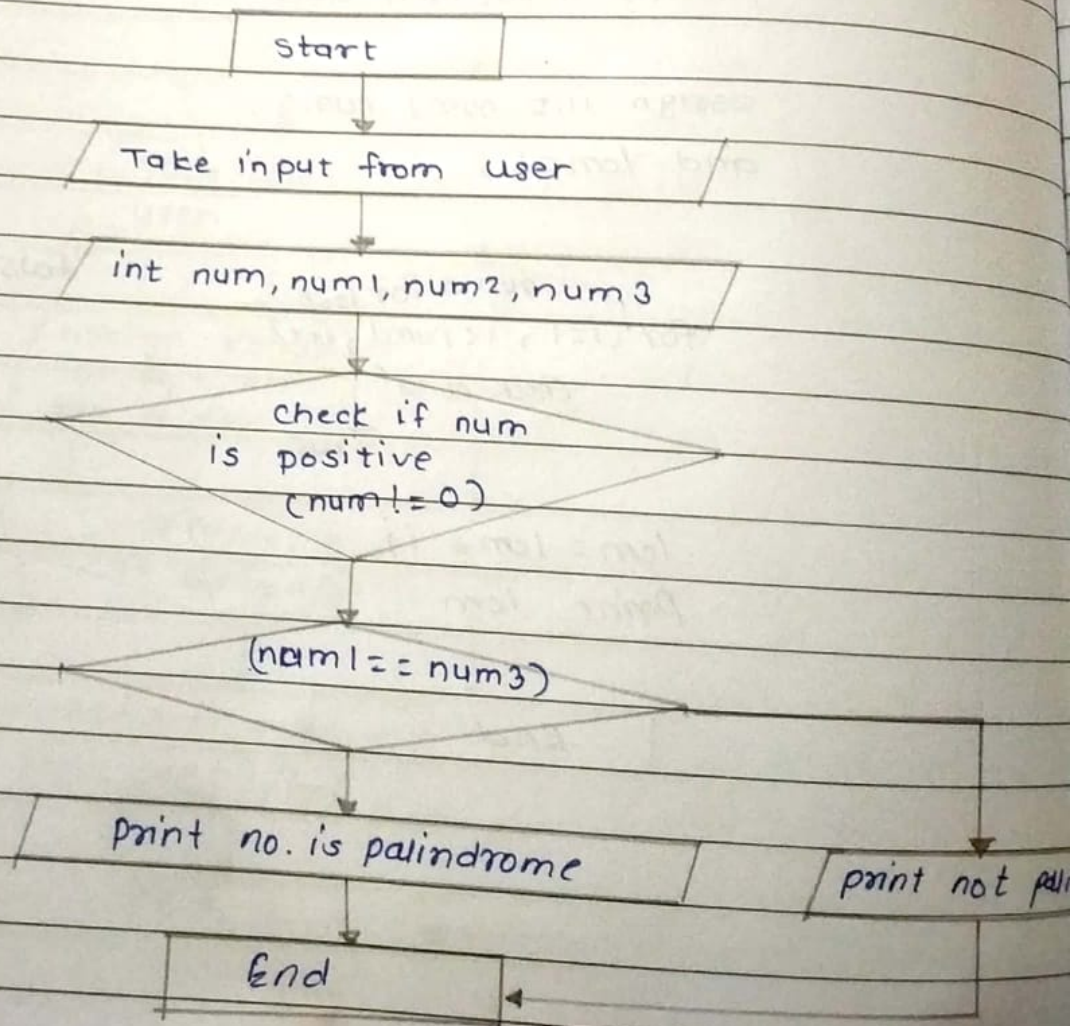 start
Take input from user
int num, num1, num2, num3
check if num
is positive
(num != 0)
(num1 == num3)
print no. is palindrome
print not
End